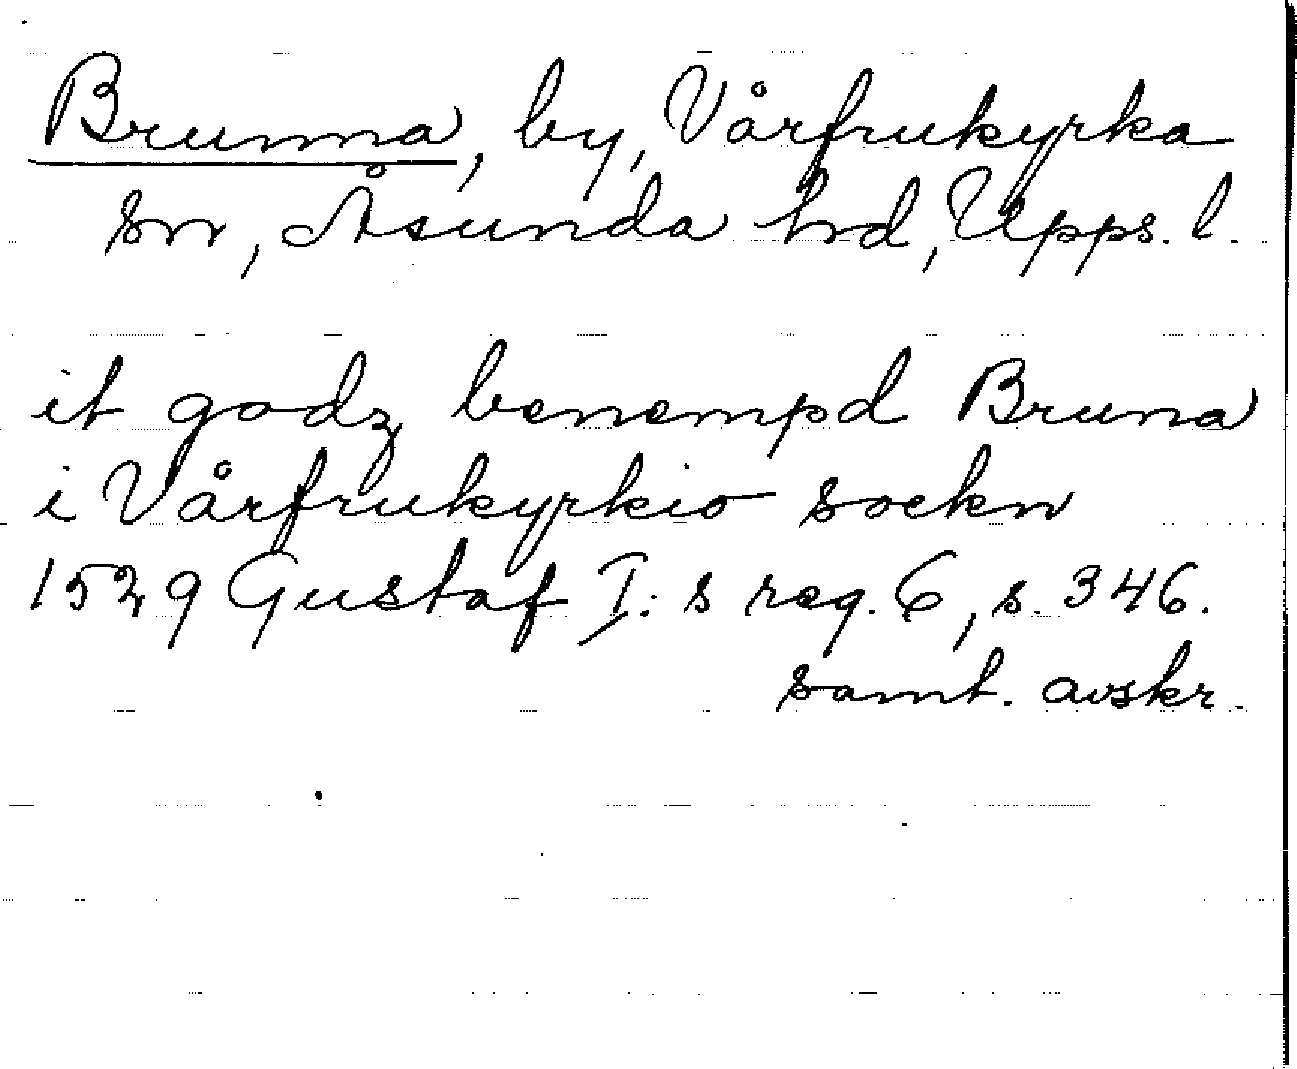 Brunna, by, Vårfrukyrka
sn, Åsunda hd, Upps. l.
it godz benempd Bruna
i Vårfrukyrkio sockn
1529 Gustaf I:s reg. 6, s. 346.
samt. avskr.